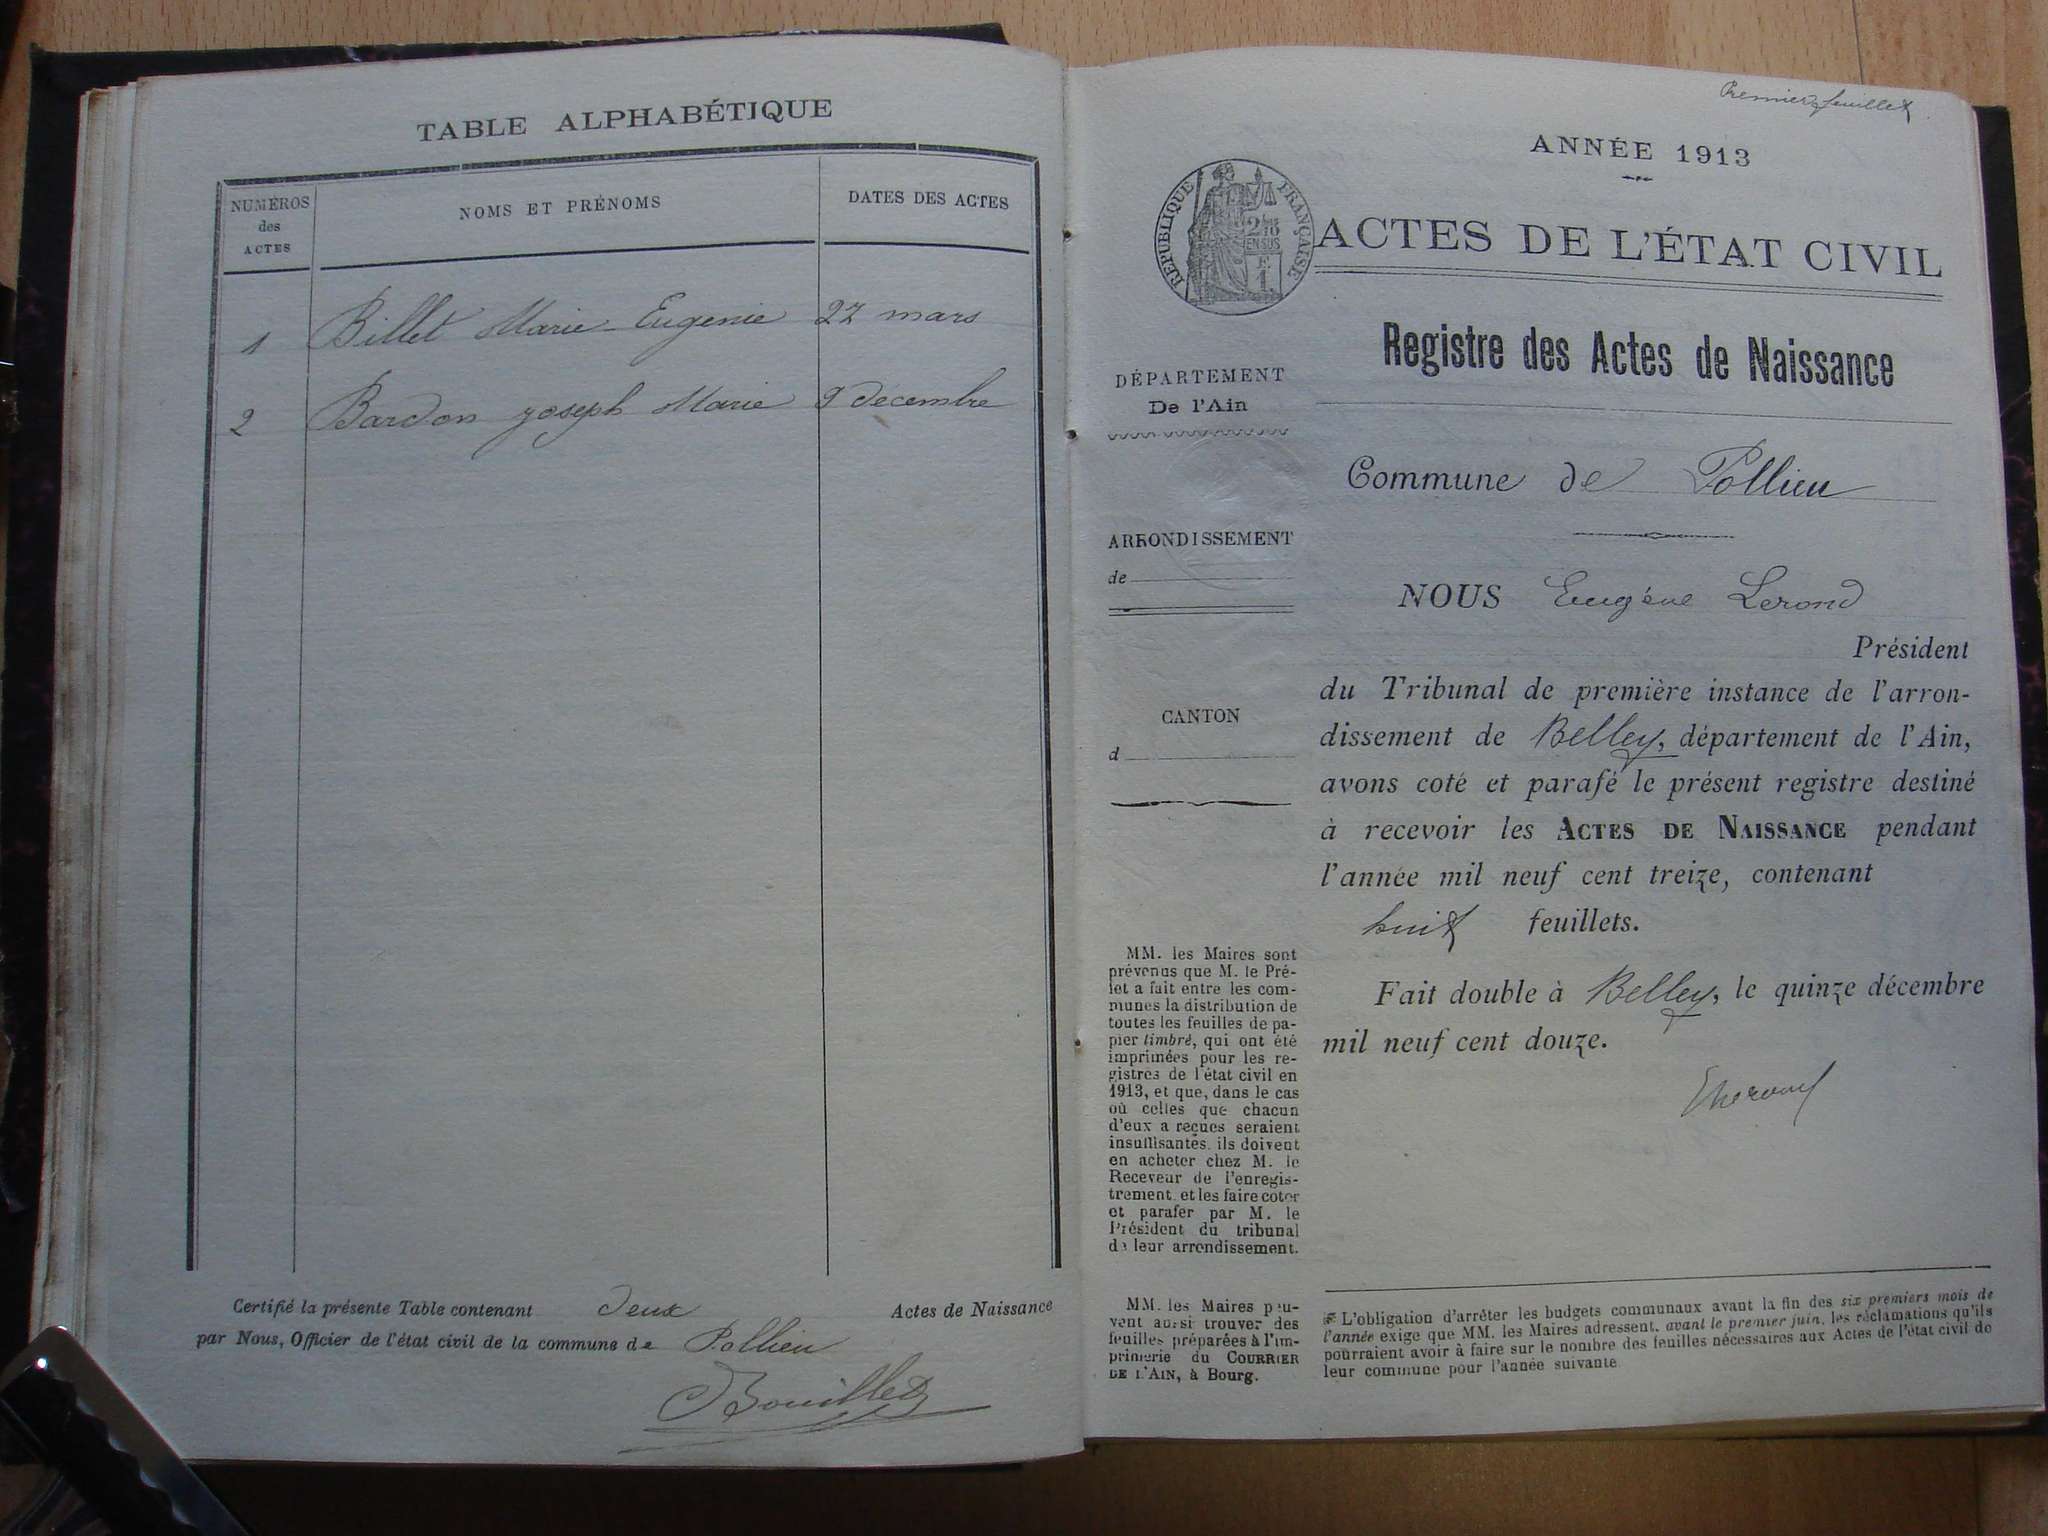 TABLE ALPHABÉTIQUE
NUMÉROS
des
ACTES
NOMS ET PRÉNOMS
DATES DES ACTES
1 Billet Marie Eugenie 27 mars
2 Bardon joseph Marie 9 décembre
Certifié la présente Table contenant deux Actes de Naissance
par Nous, Officier de l'état civil de la commune de Pollieu
Bouillet
Premier feuillet
ANNÉE 1913
RÉPUBLIQUE FRANÇAISE
2/10
EN SUS
F.
1.
ACTES DE L'ÉTAT CIVIL
Registre des Actes de Naissance
DÉPARTEMENT
De l'Ain
ARRONDISSEMENT
de
CANTON
d
MM. les Maires sont
prévenus que M. le Pré-
fet a fait entre les com-
munes la distribution de
toutes les feuilles de pa-
pier timbré, qui ont été
imprimées pour les re-
gistres de l'état civil en
1913, et que, dans le cas
où celles que chacun
d'eux a reçues seraient
insuffisantes, ils doivent
en acheter chez M. le
Receveur de l'enregis-
trement et les faire coter
et parafer par M. le
Président du tribunal
de leur arrondissement.
MM. les Maires peu-
vent aussi trouver des
feuilles préparées à l'im-
primerie du COURRIER
DE L'AIN, à Bourg.
Commune de Pollieu
NOUS Eugène Lerond
Président
du Tribunal de première instance de l'arron-
dissement de Belley, département de l'Ain,
avons coté et parafé le présent registre destiné
à recevoir les ACTES DE NAISSANCE pendant
l'année mil neuf cent treize, contenant
huit feuillets.
Fait double à Belley, le quinze décembre
mil neuf cent douze.
L'obligation d'arrêter les budgets communaux avant la fin des six premiers mois de
l'année exige que MM. les Maires adressent, avant le premier juin, les réclamations qu'ils
pourraient avoir à faire sur le nombre des feuilles nécessaires aux Actes de l'état civil de
leur commune pour l'année suivante.